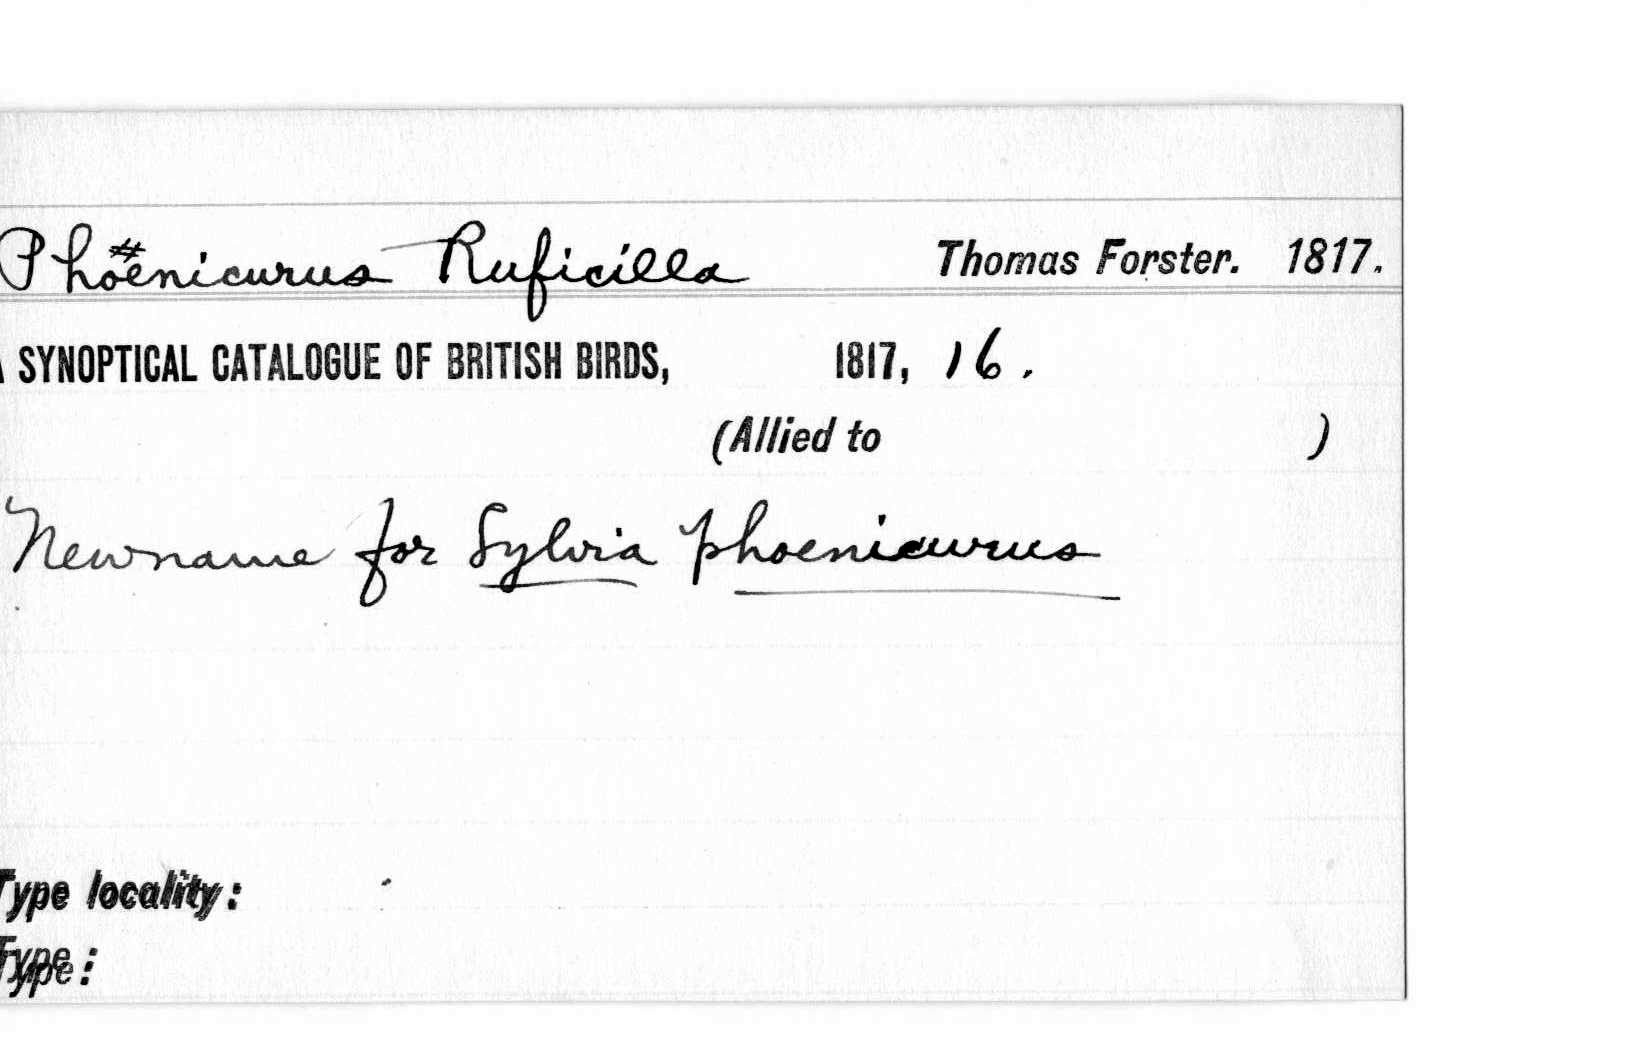 Phoenicurus Ruficilla Thomas Forster. 1817.
A SYNOPTICAL CATALOGUE OF BRITISH BIRDS, 1817, 16.
(Allied to )
New name for Sylvia phoenicurus
Type locality:
Type: